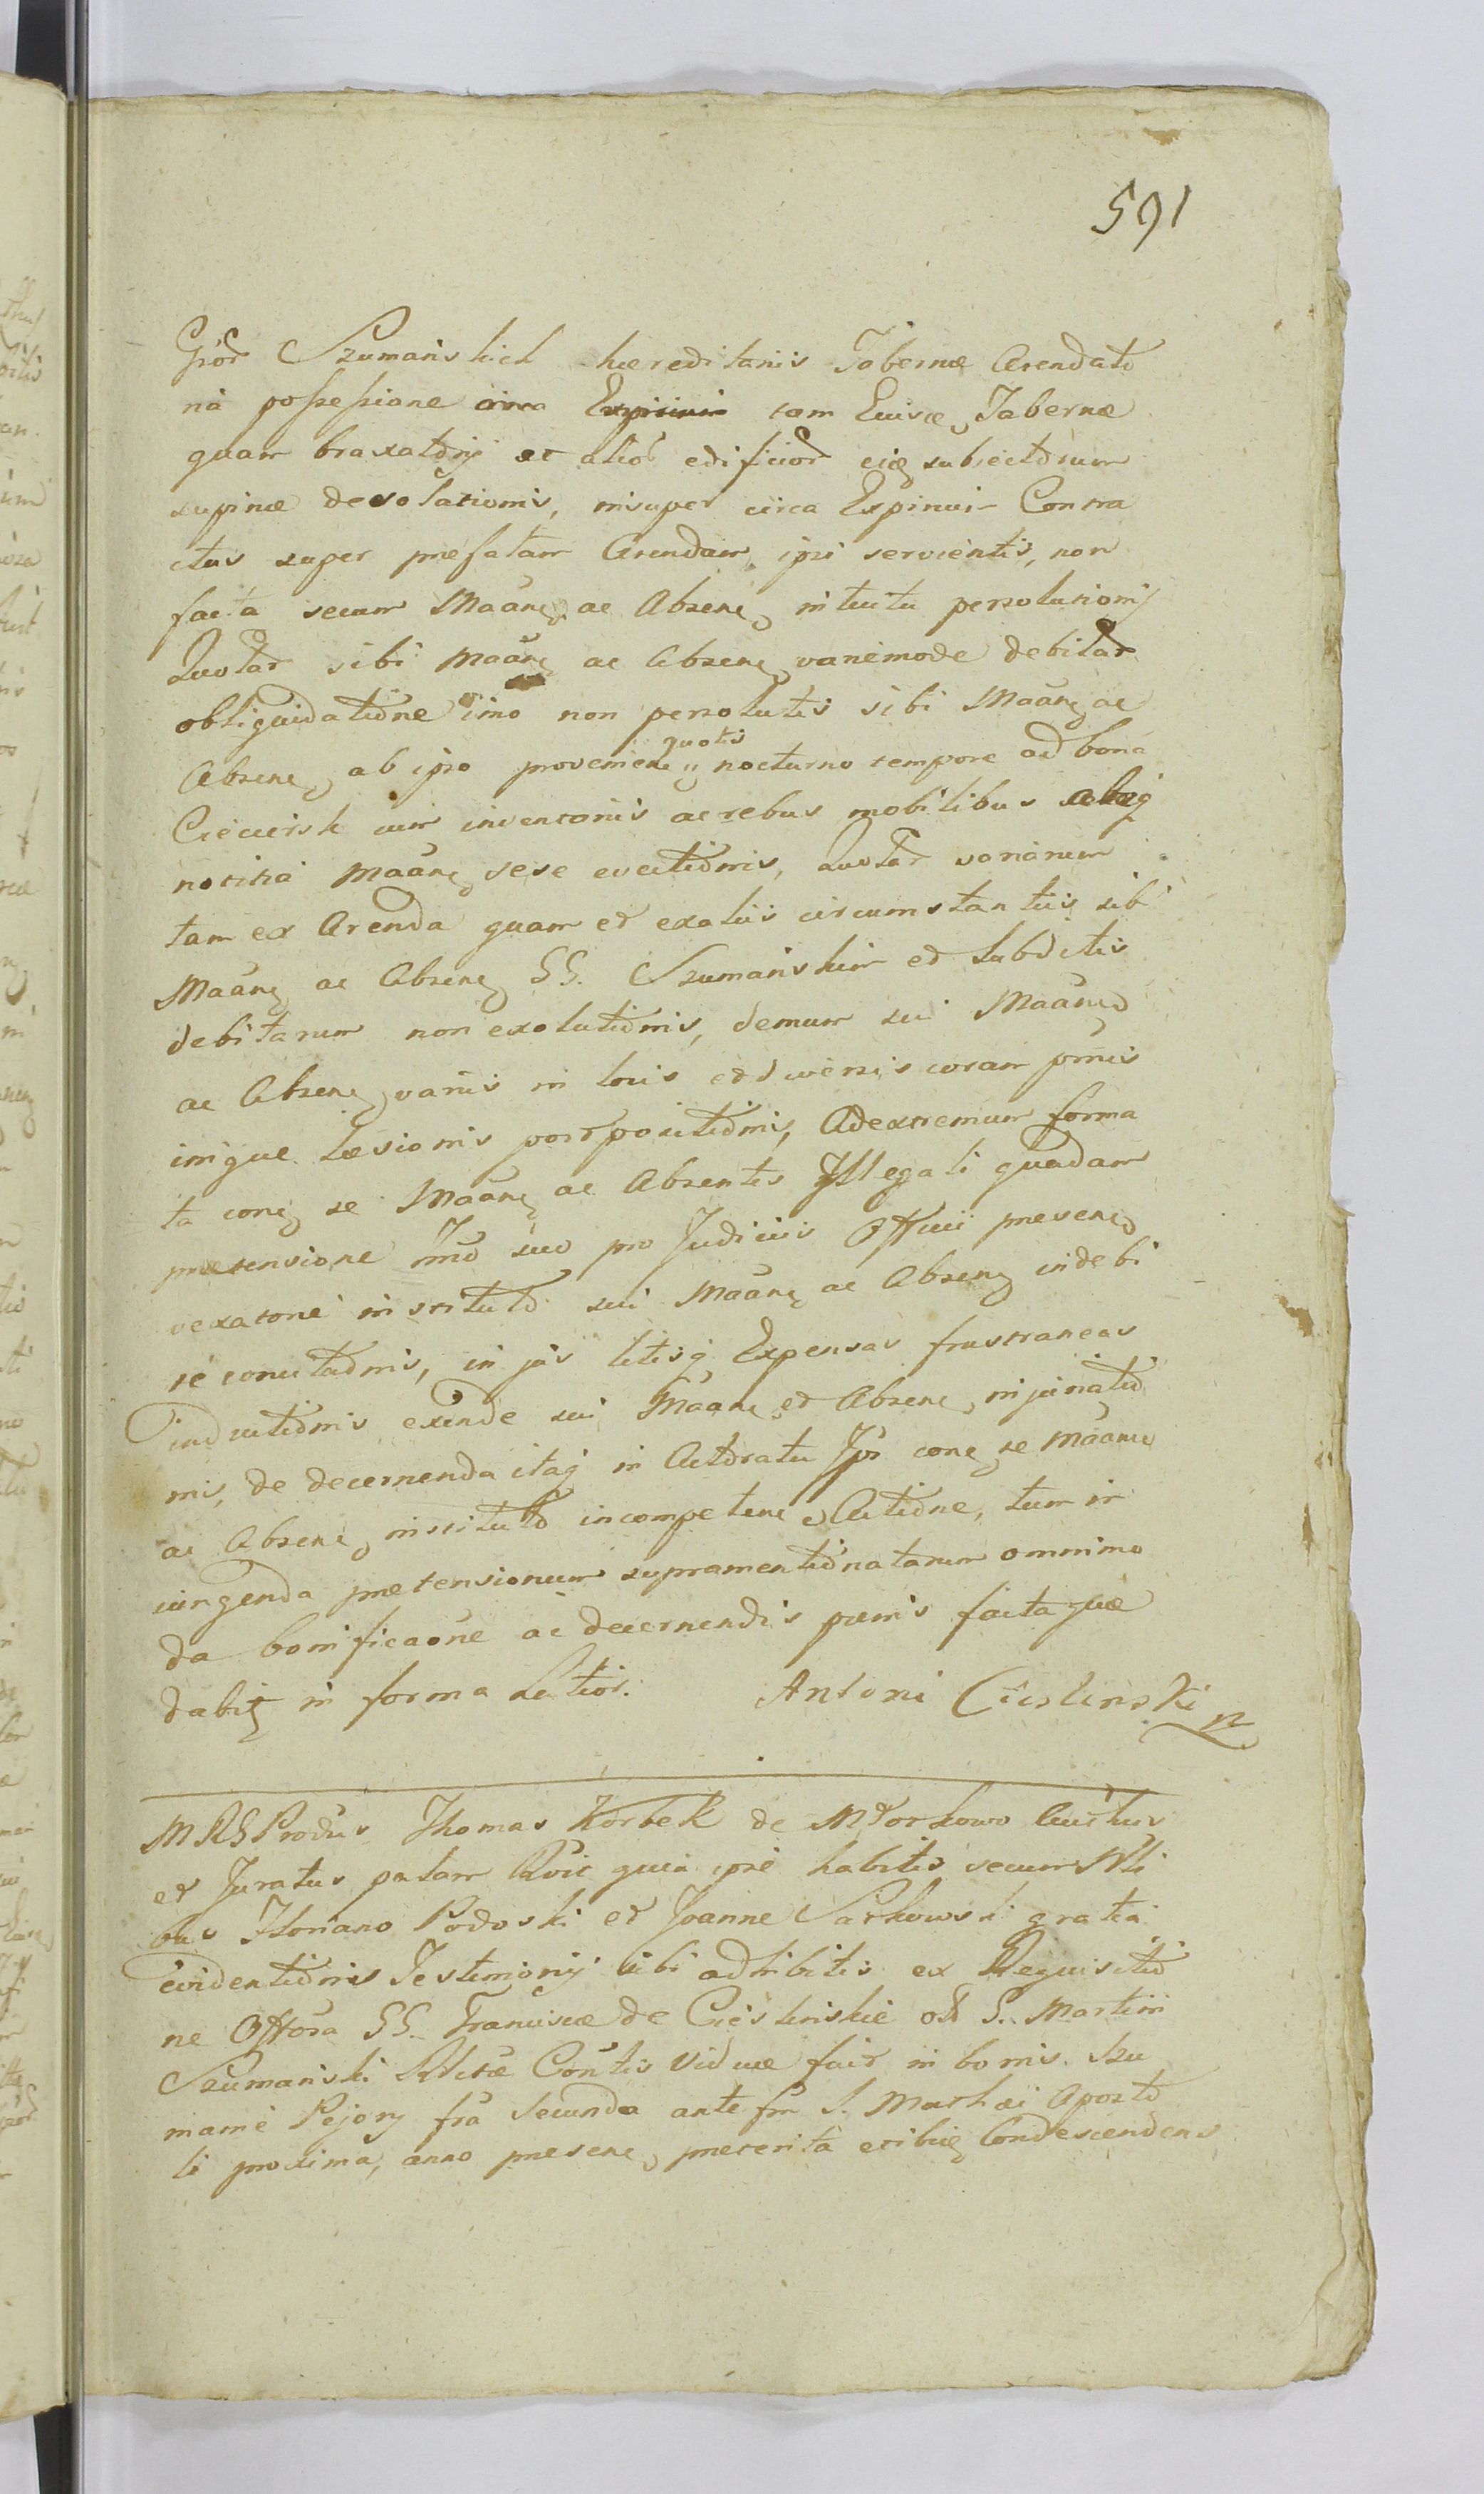 591
Gr̃or̃ Szumańskich hæreditariis Tabernæ Arendato
ria possessione circa tam Eiusce Tabernæ
quam braxatorÿ ac alior̃ edificior̃ eiq subiectorum
supinæ desolationis, insuper circa Expirium Contra
ctus super præfatam Arendam ipsi servientis, non
facta secum Maãne ac Absene intuitu persolutionis
Quotar̃ sibi Maãne ac Absene variemode debitar̃
obliquidatiõne imo non persolutis sibi Maãne ac
Absene ab ipso proveniene quotis nocturno tempore ad bona
cum inventariis ac rebus mobilibus absq
notitia Maãne sese evectiõnis, quotar̃ variarum
tam ex Arenda quam et ex aliis circumstantiis sibi
Maãne ac Absene GG. Szumańskim et Subditis
debitarum non exolutiõnis, demum sui Maãne
ac Absene variis in locis et diversis coram pr̃nis
inique Læsionis postpositiõnis, Ad extremum forma
ta cone se Maãne ac Absentis Illegali quadam
prætensione Ter̃mo suo pro Judiciis Officii præsene
vexatorie instituto sui Maãne ac Absene indebi
te concitatiõnis, in jus litisq Expensas frustraneas
inductiõnis exinde sui Maãne et Absene injuriatiõ
nis, de decernenda itaq in Actoratu Ipi cone se Maãne
ac Absene instituto incompetene Actiõne, tum in
iungenda prætensionum supramentiõnatarum omnimo
da bonificaõne ac decernendis pœnis facta quæ
dabit in forma Latior.
Antoni Cieslinski
MRG Produs Thomas Korbek de Mdorkowo Auctus
et Juratus palam Rvit quia ipse habitis secum Nli
bus Floriano Podoski et Joanne Sarkowski gratia
evidentiõnis TestimoniJ sibi adhibitis ex Requisitiõ
ne Offõsa GG. Franciscæ de Cieslinskie olt G. Martini
Szumański Rlictæ Contis Viduæ fuit in bonis Szu
manie Pejory fr̃a Secunda ante fm S. Mathæi Aposto
li proxima, anno præsene præterita etibiq Condescendens